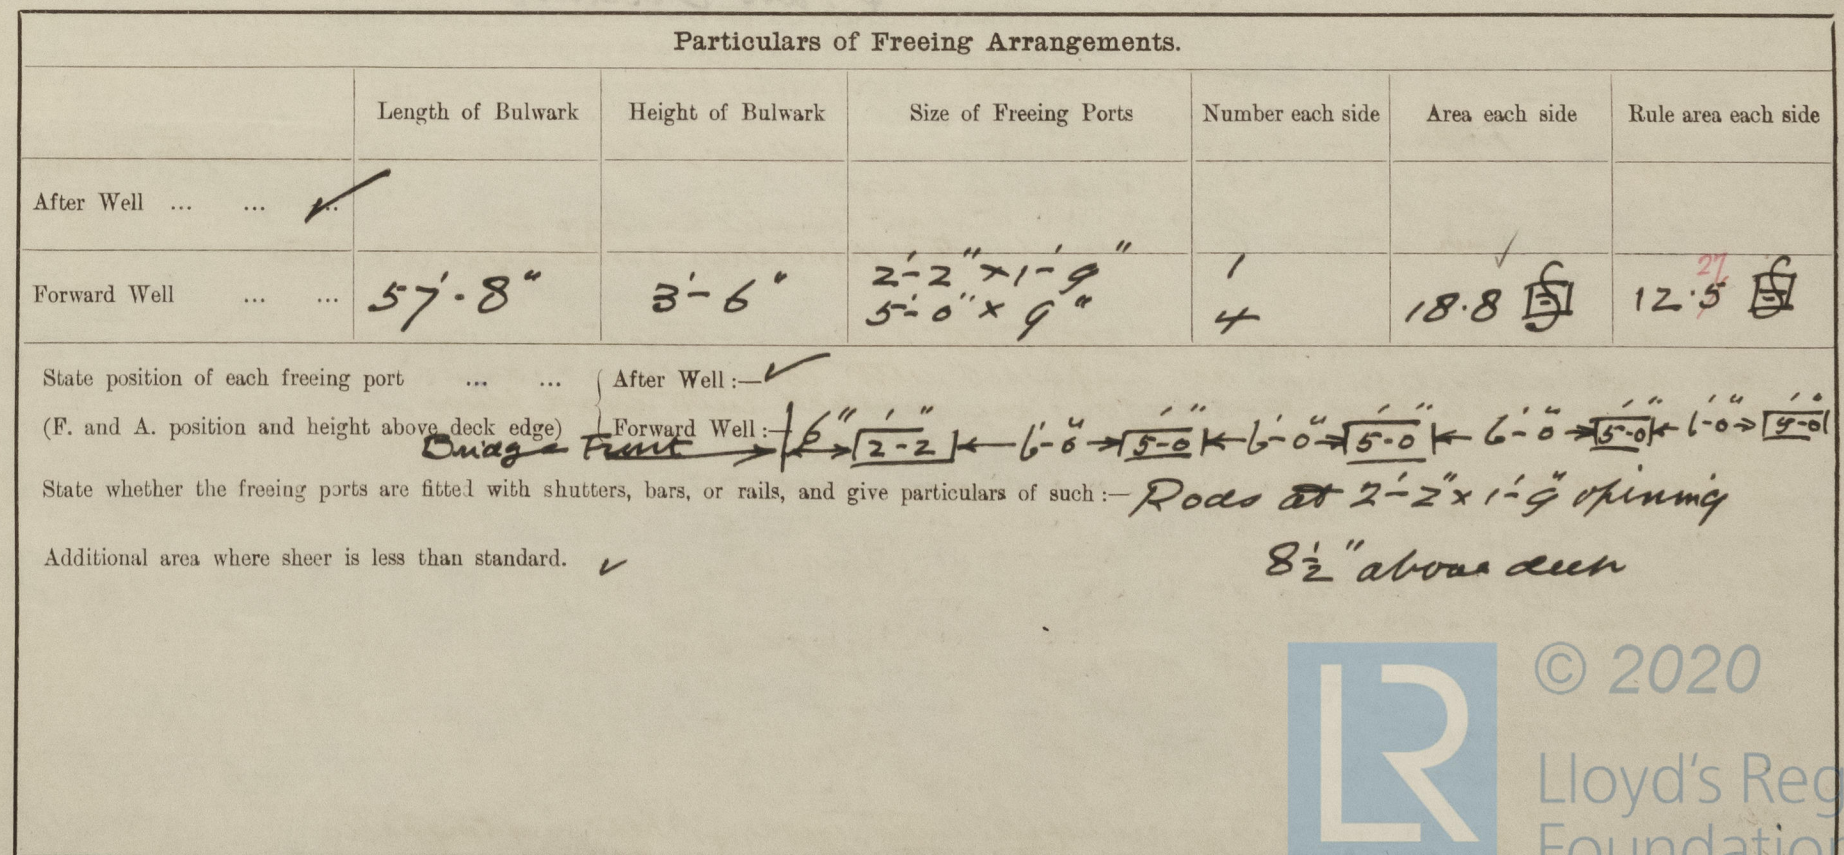 Particulars of Freeing Arrangements.
Length of Bulwark Height of Bulwark Size of Freeing Ports Number each side Area each side Rule area each side
After Well ... ... ...
2'-2" × 1'-9" 1 27
Forward Well ... ... 57'-8" 3'-6" 5'-0" × 9" 4 18.8 12.5
State position of each freeing port ... ... After Well :—
(F. and A. position and height above deck edge) Forward Well :— 6" 2'-2" 6'-0" 5'-0" 6'-0" 5'-0" 6'-0" 5'-0" 6'-0" 5'-0"
Bridge Front
State whether the freeing ports are fitted with shutters, bars, or rails, and give particulars of such :— Rods at 2'-2" × 1'-9" opening
Additional area where sheer is less than standard. 8½" above deck
© 2020
LR
Lloyd's Reg
Foundation